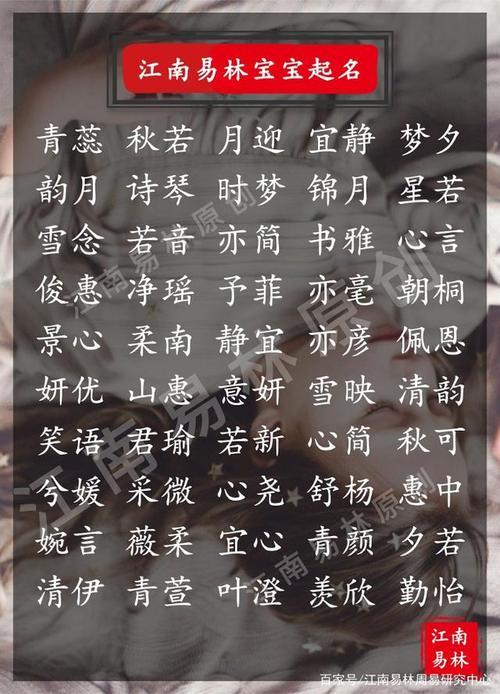 江南易林宝宝起名
青蕊 秋若 月迎 宜静 梦夕
韵月 诗琴 时梦 锦月 星若
雪念 若音 亦简 书雅 心言
俊惠 净瑶 予菲 亦毫 朝桐
景心 柔南 静宜 亦彦 佩恩
妍优 山惠 意妍 雪映 清韵
笑语 君瑜 若新 心简 秋可
兮媛 采微 心尧 舒杨 惠中
婉言 薇柔 宜心 青颜 夕若
清伊 青萱 叶澄 羡欣 勤怡
江南易林原创
江南易林原创
江南易林原创
江南
易林
百家号/江南易林周易研究中心